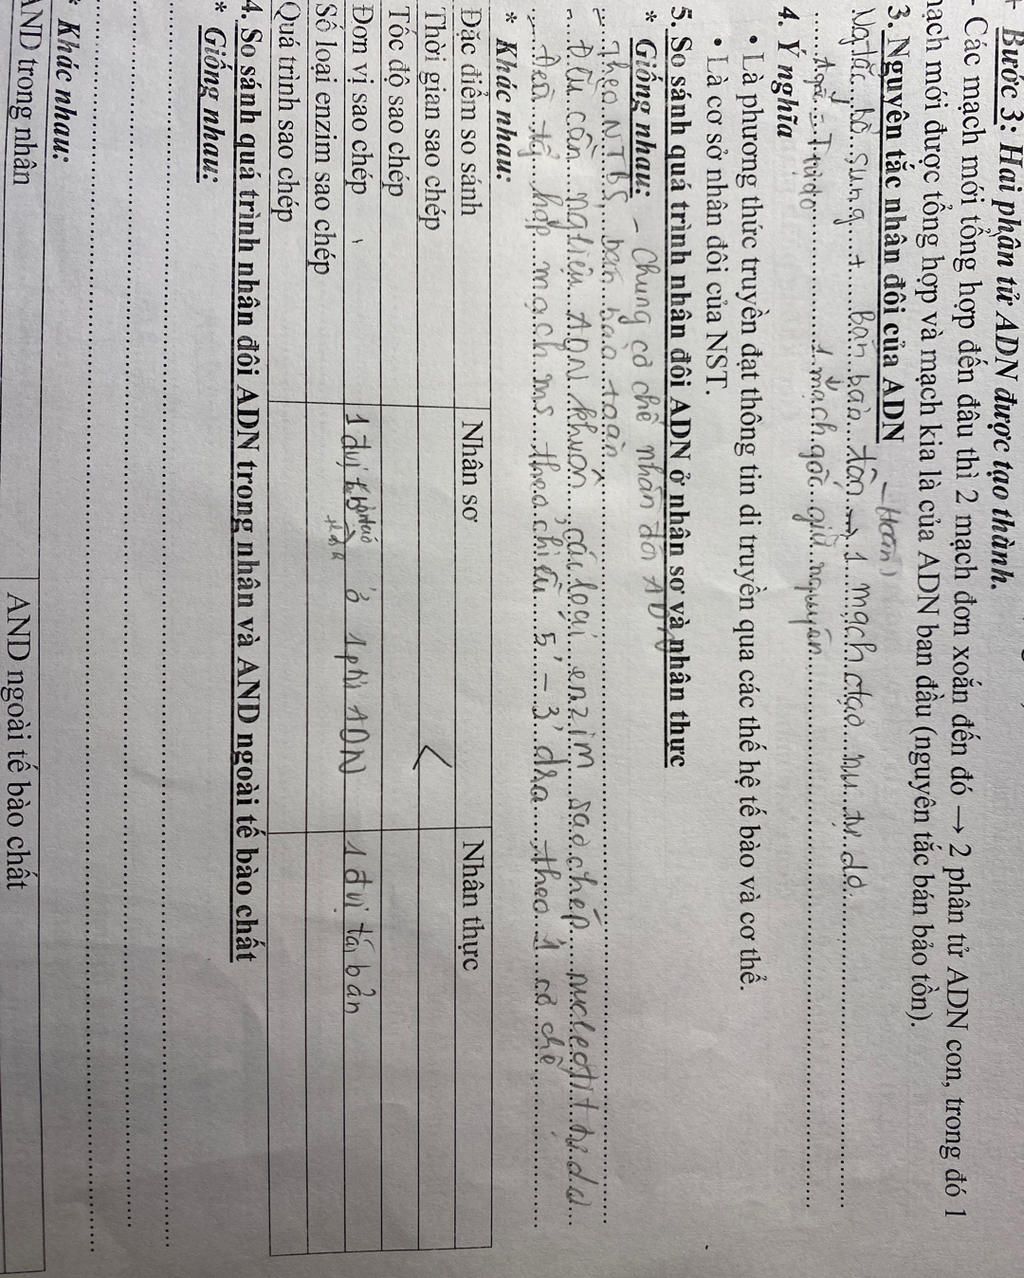 + Bước 3: Hai phân tử ADN được tạo thành.
- Các mạch mới tổng hợp đến đâu thì 2 mạch đơn xoắn đến đó → 2 phân tử ADN con, trong đó 1
mạch mới được tổng hợp và mạch kia là của ADN ban đầu (nguyên tắc bán bảo tồn).
3. Nguyên tắc nhân đôi của ADN
Ngtắc bổ sung + bán bảo tồn → 1 mạch ctạo nu tự do
1 mạch gốc giữ nguyên
4. Ý nghĩa
• Là phương thức truyền đạt thông tin di truyền qua các thế hệ tế bào và cơ thể.
• Là cơ sở nhân đôi của NST.
5. So sánh quá trình nhân đôi ADN ở nhân sơ và nhân thực
* Giống nhau: - Chung cơ chế nhân đôi ADN
- theo NTBS, bán bảo toàn
- Đều cần ngliệu ADN khuôn, các loại enzim sao chép, nucleotit tự do
- Đều tổ hợp mạch ms theo chiều 5' - 3' dra theo 1 cơ chế
* Khác nhau:
Đặc điểm so sánh Nhân sơ Nhân thực
Thời gian sao chép
Tốc độ sao chép <
Đơn vị sao chép 1 đvị ở 1 ptử ADN 1 đvị tái bản
Số loại enzim sao chép
Quá trình sao chép
4. So sánh quá trình nhân đôi ADN trong nhân và AND ngoài tế bào chất
* Giống nhau:
* Khác nhau:
AND trong nhân AND ngoài tế bào chất